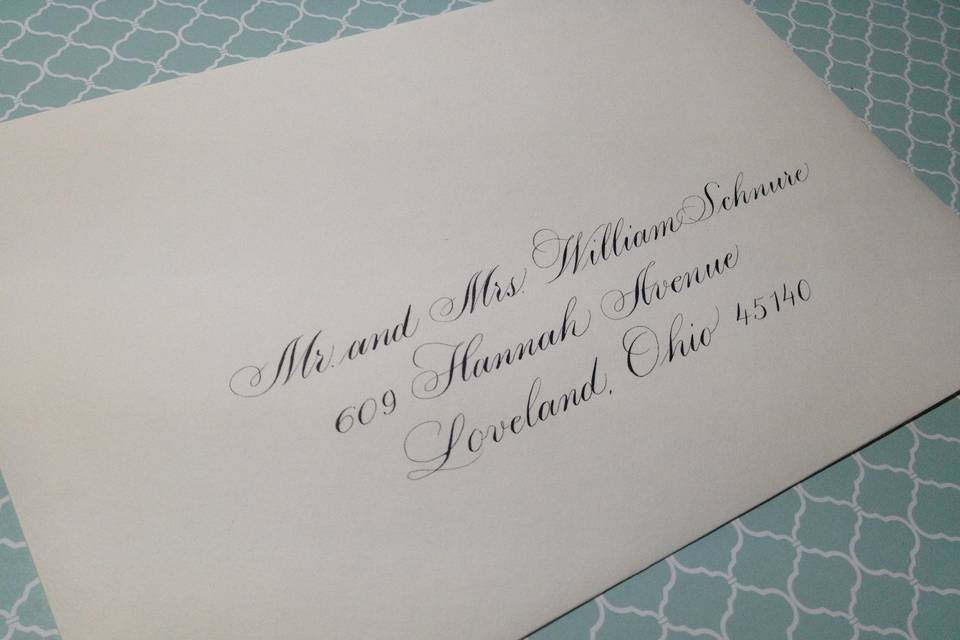 Mr. and Mrs. William Schnure
609 Hannah Avenue
Loveland, Ohio 45140